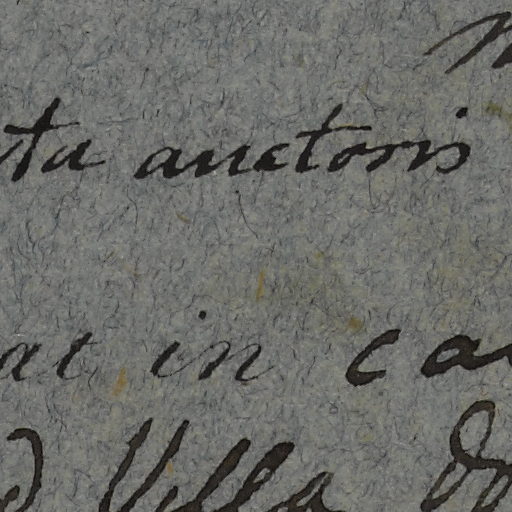 ta auctoris
at in ca
d Villa do